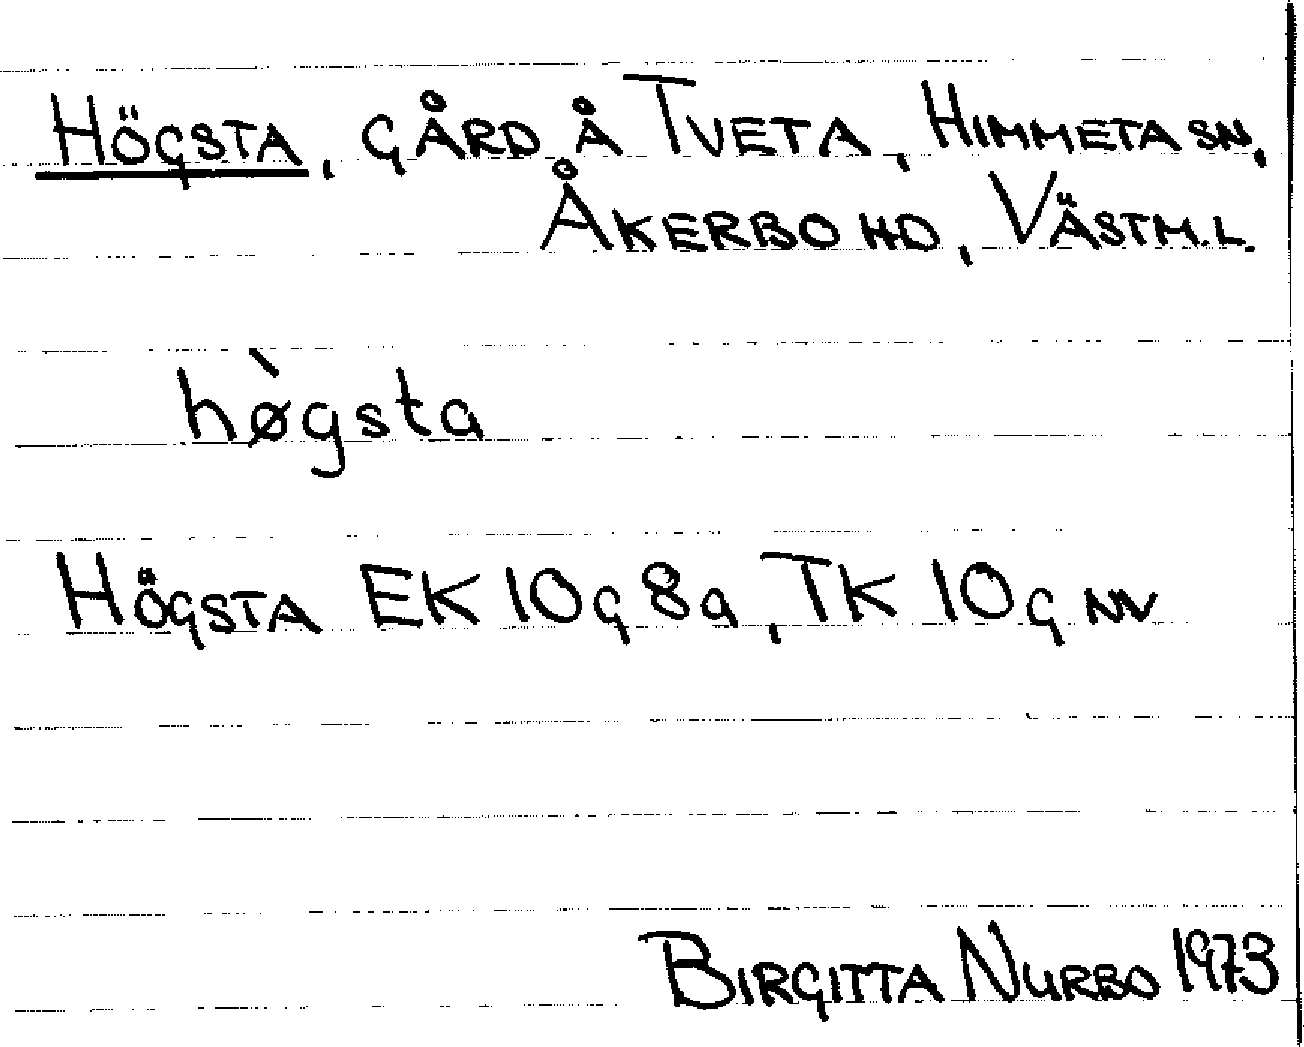 HÖGSTA, GÅRD Å TVETA, HIMMETA SN,
ÅKERBO HD, VÄSTM.L.
hø̀gsta
HÖGSTA EK 10G 8a, TK 10G NV
BIRGITTA NURBO 1973